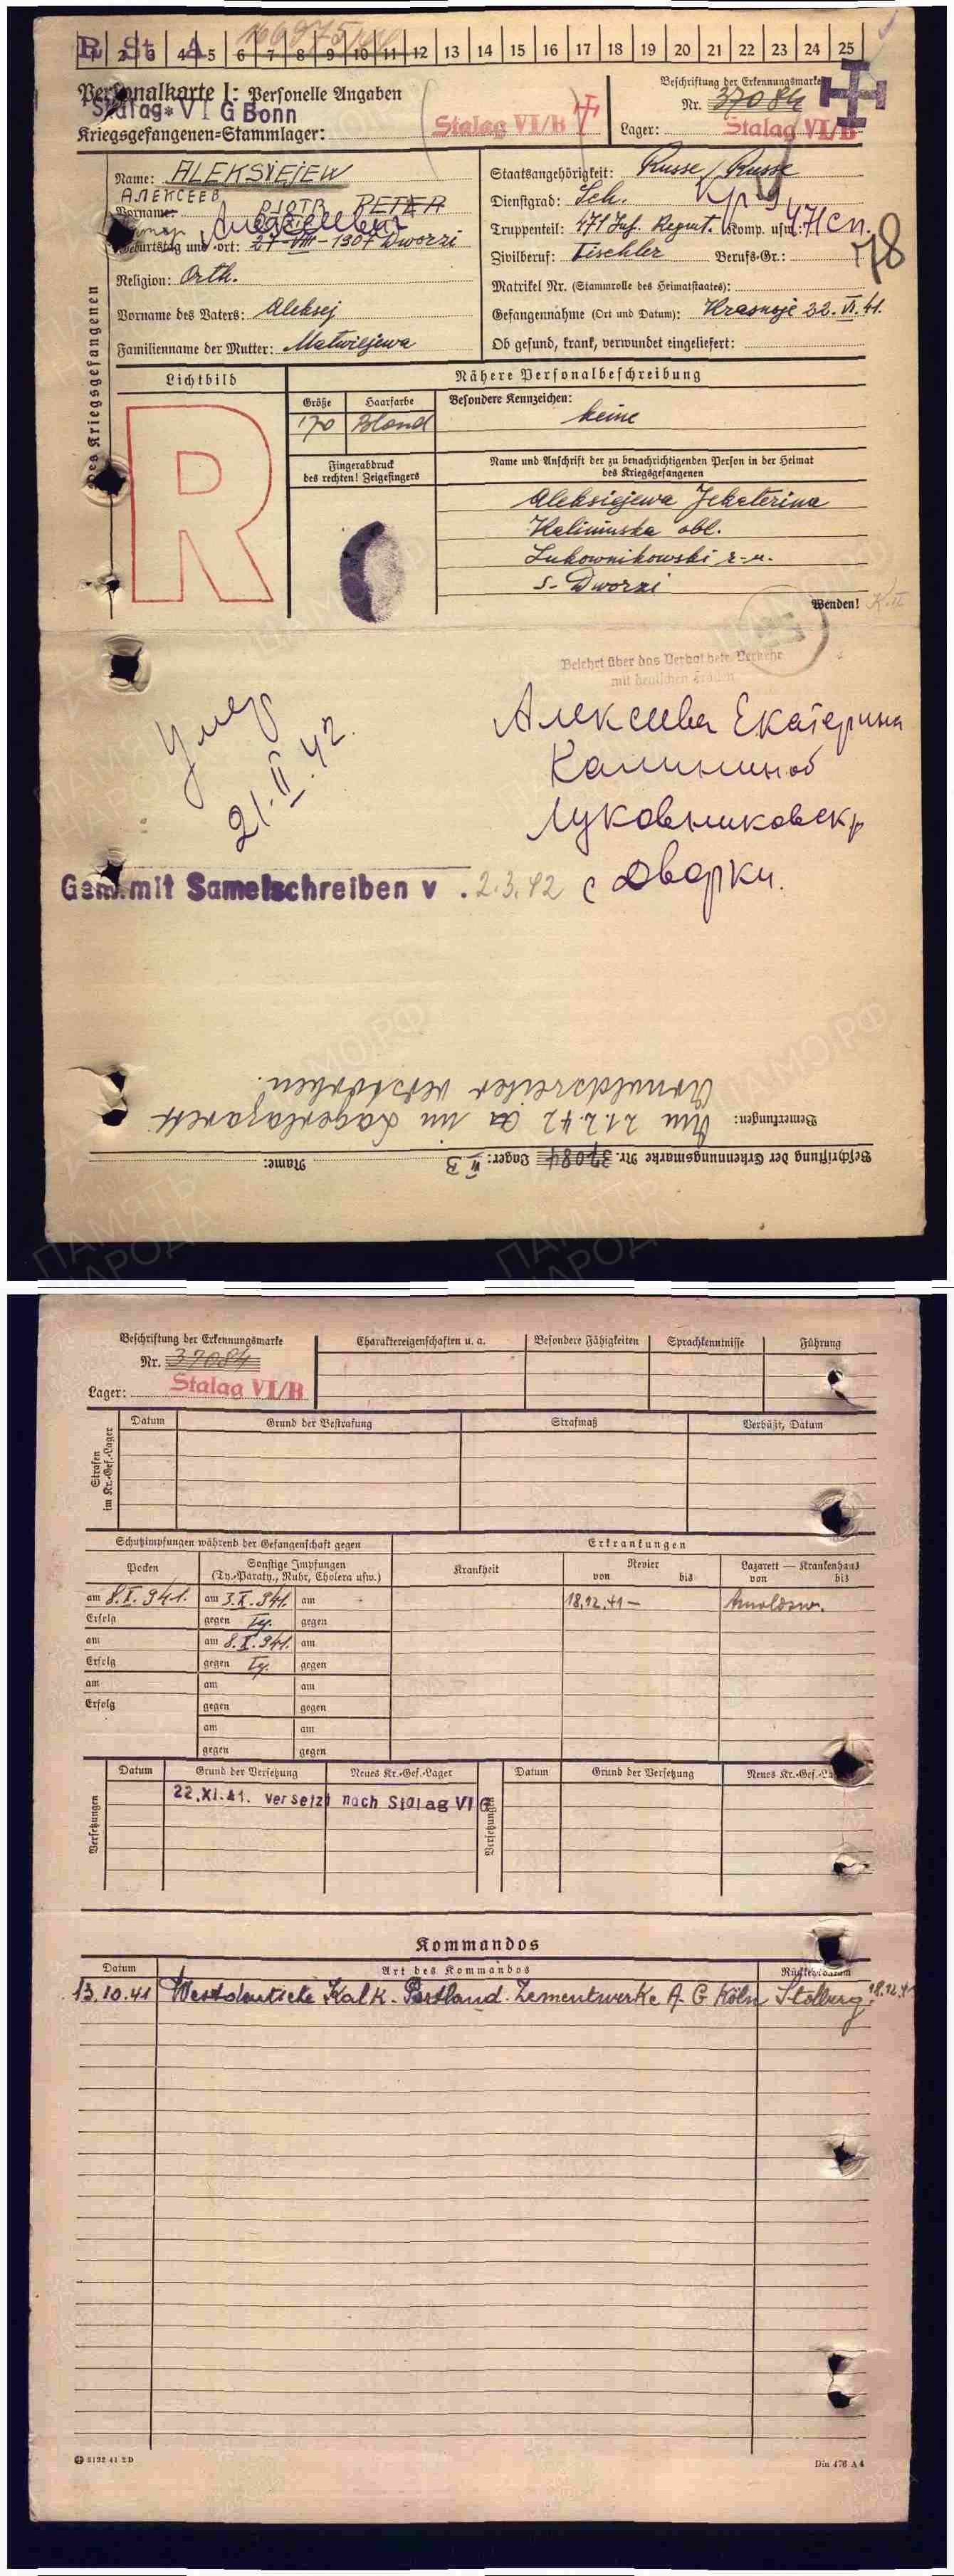 R St A
1 2 3 4 5 6 7 8 9 10 11 12 13 14 15 16 17 18 19 20 21 22 23 24 25
Personalkarte I: Personelle Angaben
Stalag VI G Bonn
Kriegsgefangenen-Stammlager: Stalag VI/B
Beschriftung der Erkennungsmarke
Nr. 37084
Lager: Stalag VI/B
Des Kriegsgefangenen
Name: ALEKSIEJEW
АЛЕКСЕЕВ
Vorname: PIOTR PETER
Алексеевич
Geburtstag und -ort: 27-VIII-1907 Dworzi
Religion: Orth.
Vorname des Vaters: Aleksej
Familienname der Mutter: Matwiejewa
Staatsangehörigkeit: Russe / Russe
Dienstgrad: Sch. Кр-ц
Truppenteil: 471 Inf. Regmt. Komp. usw.: 471 сп.
Zivilberuf: Tischler Berufs-Gr.:
78
Matrikel Nr. (Stammrolle des Heimatstaates):
Gefangennahme (Ort und Datum): Krasnoje 22. VI. 41.
Ob gesund, krank, verwundet eingeliefert:
Lichtbild
R
Nähere Personalbeschreibung
Größe Haarfarbe Besondere Kennzeichen:
170 Blond keine
Fingerabdruck
des rechten! Zeigefingers
Name und Anschrift der zu benachrichtigenden Person in der Heimat
des Kriegsgefangenen
Aleksiejewa Jekaterina
Kalininska obl.
Lukownikowski r-n.
s- Dworzi
Wenden!
Belehrt über das Verbot betr. Verkehr
mit deutschen Frauen
Умер
21.II.42.
Алексеева Екатерина
Калининоб
Луковниковскр
с Дворки.
Gem. mit Samelschreiben v. 2.3.42
Beschriftung der Erkennungsmarke Nr. 37084 Lager: VI B Name:
Bemerkungen: Am 21.2.42 im Lagerlazarett
Arnoldsweiler verstorben.
Beschriftung der Erkennungsmarke
Nr. 37084
Lager: Stalag VI/B
Charaktereigenschaften u. a. Besondere Fähigkeiten Sprachkenntnisse Führung
Strafen
im Kr.-Gef.-Lager
Datum Grund der Bestrafung Strafmaß Verbüßt, Datum
Schutzimpfungen während der Gefangenschaft gegen
Pocken Sonstige Impfungen
(Ty.-Paraty., Ruhr, Cholera usw.)
Erkrankungen
Krankheit Revier Lazarett — Krankenhaus
von bis von bis
am 8.X.941. am 3.X.941. am 18.12.41 — Arnoldsw.
Erfolg gegen Ty. gegen
am am 8.X.941. am
Erfolg gegen Ty. gegen
am am am
Erfolg gegen gegen
am am
gegen gegen
Versetzungen
Datum Grund der Versetzung Neues Kr.-Gef.-Lager
22.XI.41. versetzt nach Stalag VI G
Versetzungen
Datum Grund der Versetzung Neues Kr.-Gef.-Lager
Kommandos
Datum Art des Kommandos Rückkehrdatum
13.10.41 Westdeutsche Kalk. Portland. Zementwerke A. G Köln Stolberg. 18.12.41
3122 41 2 D
Din 476 A 4